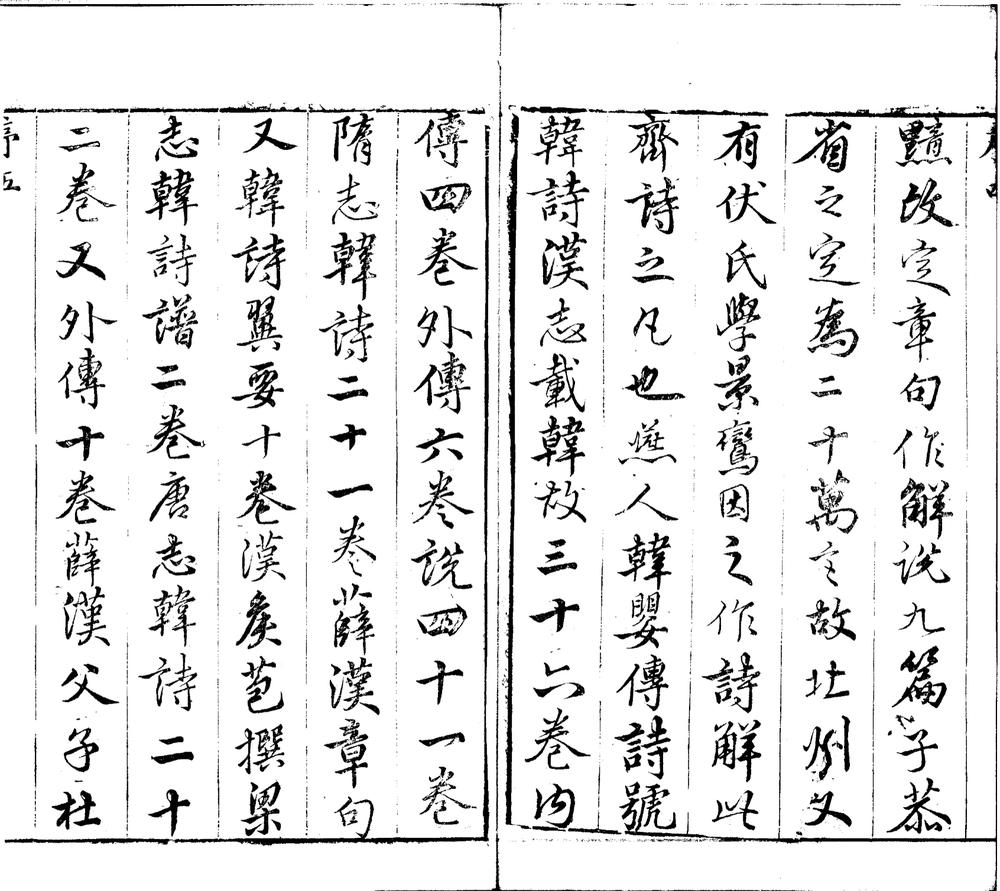 黯故定章句作解説九篇子恭
省之定為二十萬言故北州又
有伏氏學景鸞因之作詩解此
齊詩之凡也燕人韓嬰傳詩號
韓詩漢志載韓故三十六卷内
傳四卷外傳六卷説四十一卷
隋志韓詩二十一卷薛漢章句
又韓詩翼要十卷漢矦苞撰梁
志韓詩譜二卷唐志韓詩二十
二卷又外傳十卷薛漢父子杜
序五